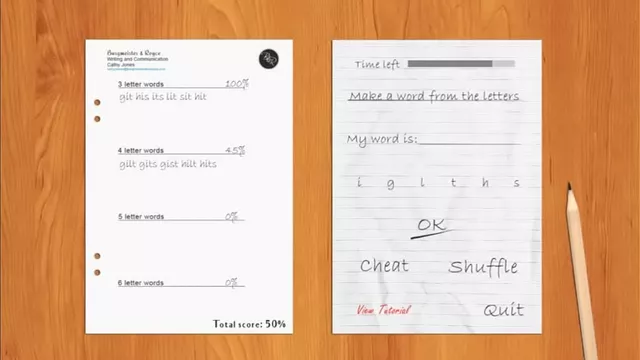 Burgmeister & Royce
Writing and Communication
Cathy Jones
3 letter words 100%
git his its lit sit hit
4 letter words 45%
gilt gits gist hilt hits
5 letter words 0%
6 letter words 0%
Total score: 50%
Time left
Make a word from the letters
My word is:
i g l t h s
OK
Cheat Shuffle
View Tutorial Quit